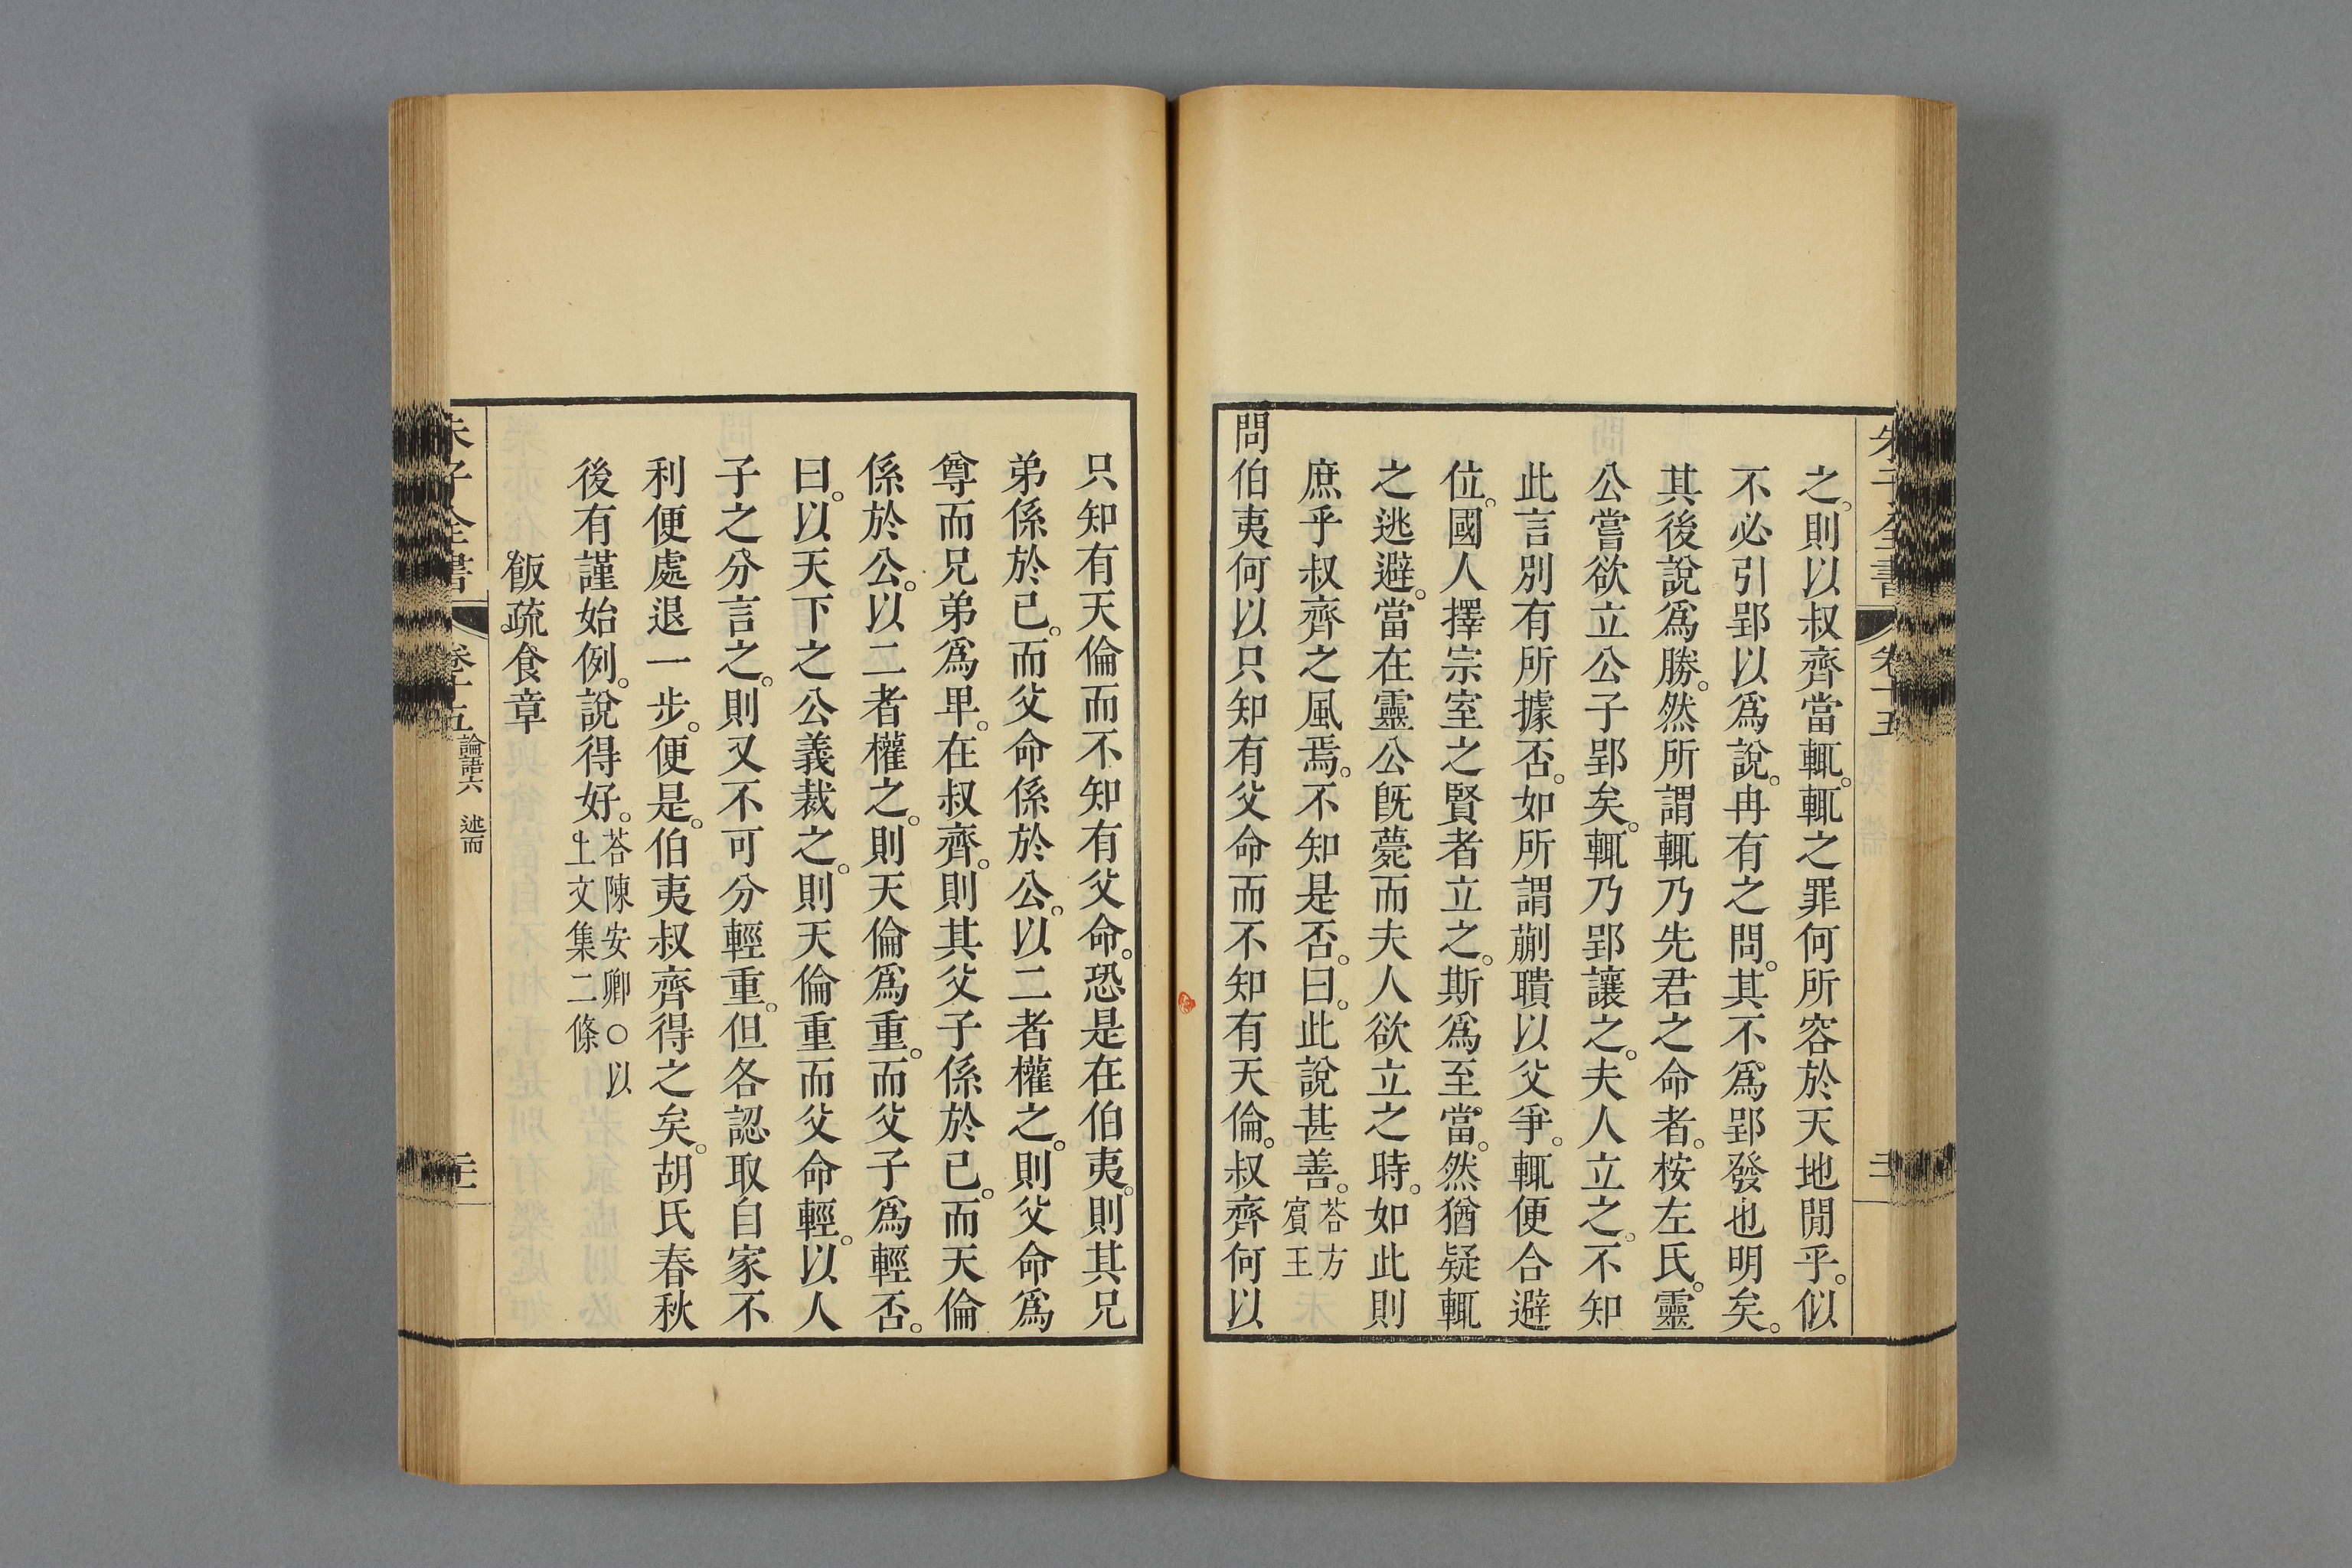 之。則以叔齊當輒。輒之罪何所容於天地閒乎。似
不必引郢以爲說。冉有之問。其不爲郢發也明矣。
其後說爲勝。然所謂輒乃先君之命者。桉左氏。靈
公嘗欲立公子郢矣。輒乃郢讓之。夫人立之。不知
此言別有所據否。如所謂蒯聵以父爭。輒便合避
位。國人擇宗室之賢者立之。斯爲至當。然猶疑輒
之逃避。當在靈公旣薨而夫人欲立之時。如此則
庶乎叔齊之風焉。不知是否。曰。此說甚善。荅方
賓王
問伯夷何以只知有父命而不知有天倫。叔齊何以
只知有天倫而不知有父命。恐是在伯夷。則其兄
弟係於已。而父命係於公。以二者權之。則父命爲
尊而兄弟爲卑。在叔齊。則其父子係於已。而天倫
係於公。以二者權之。則天倫爲重。而父子爲輕否。
曰。以天下之公義裁之。則天倫重而父命輕。以人
子之分言之。則又不可分輕重。但各認取自家不
利便處退一步。便是。伯夷叔齊得之矣。胡氏春秋
後有謹始例。說得好。荅陳安卿○以
上文集二條
飯疏食章
朱子全書
卷十五
論語六 述而